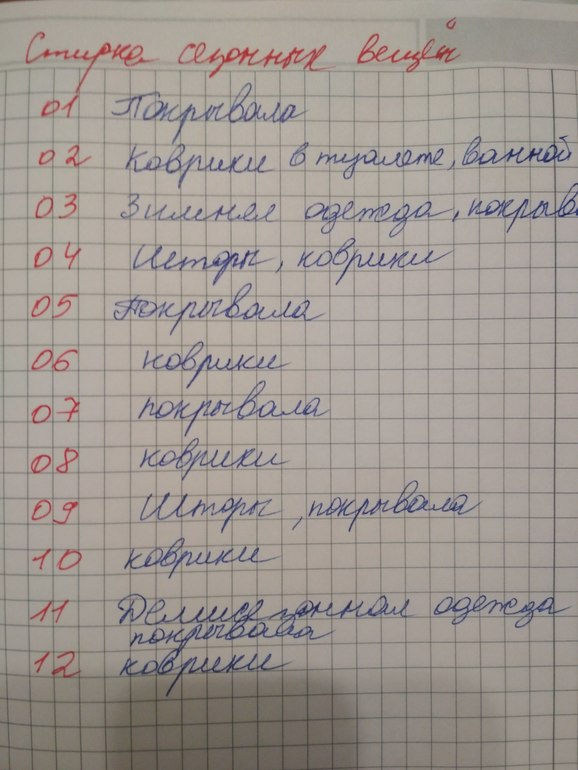 Стирка сезонных вещей
01 Покрывала
02 Коврики в туалете, ванной
03 Зимняя одежда, покрыва
04 Шторы, коврики
05 Покрывала
06 коврики
07 покрывала
08 коврики
09 Шторы, покрывала
10 коврики
11 Демисезонная одежда
покрывала
12 коврики